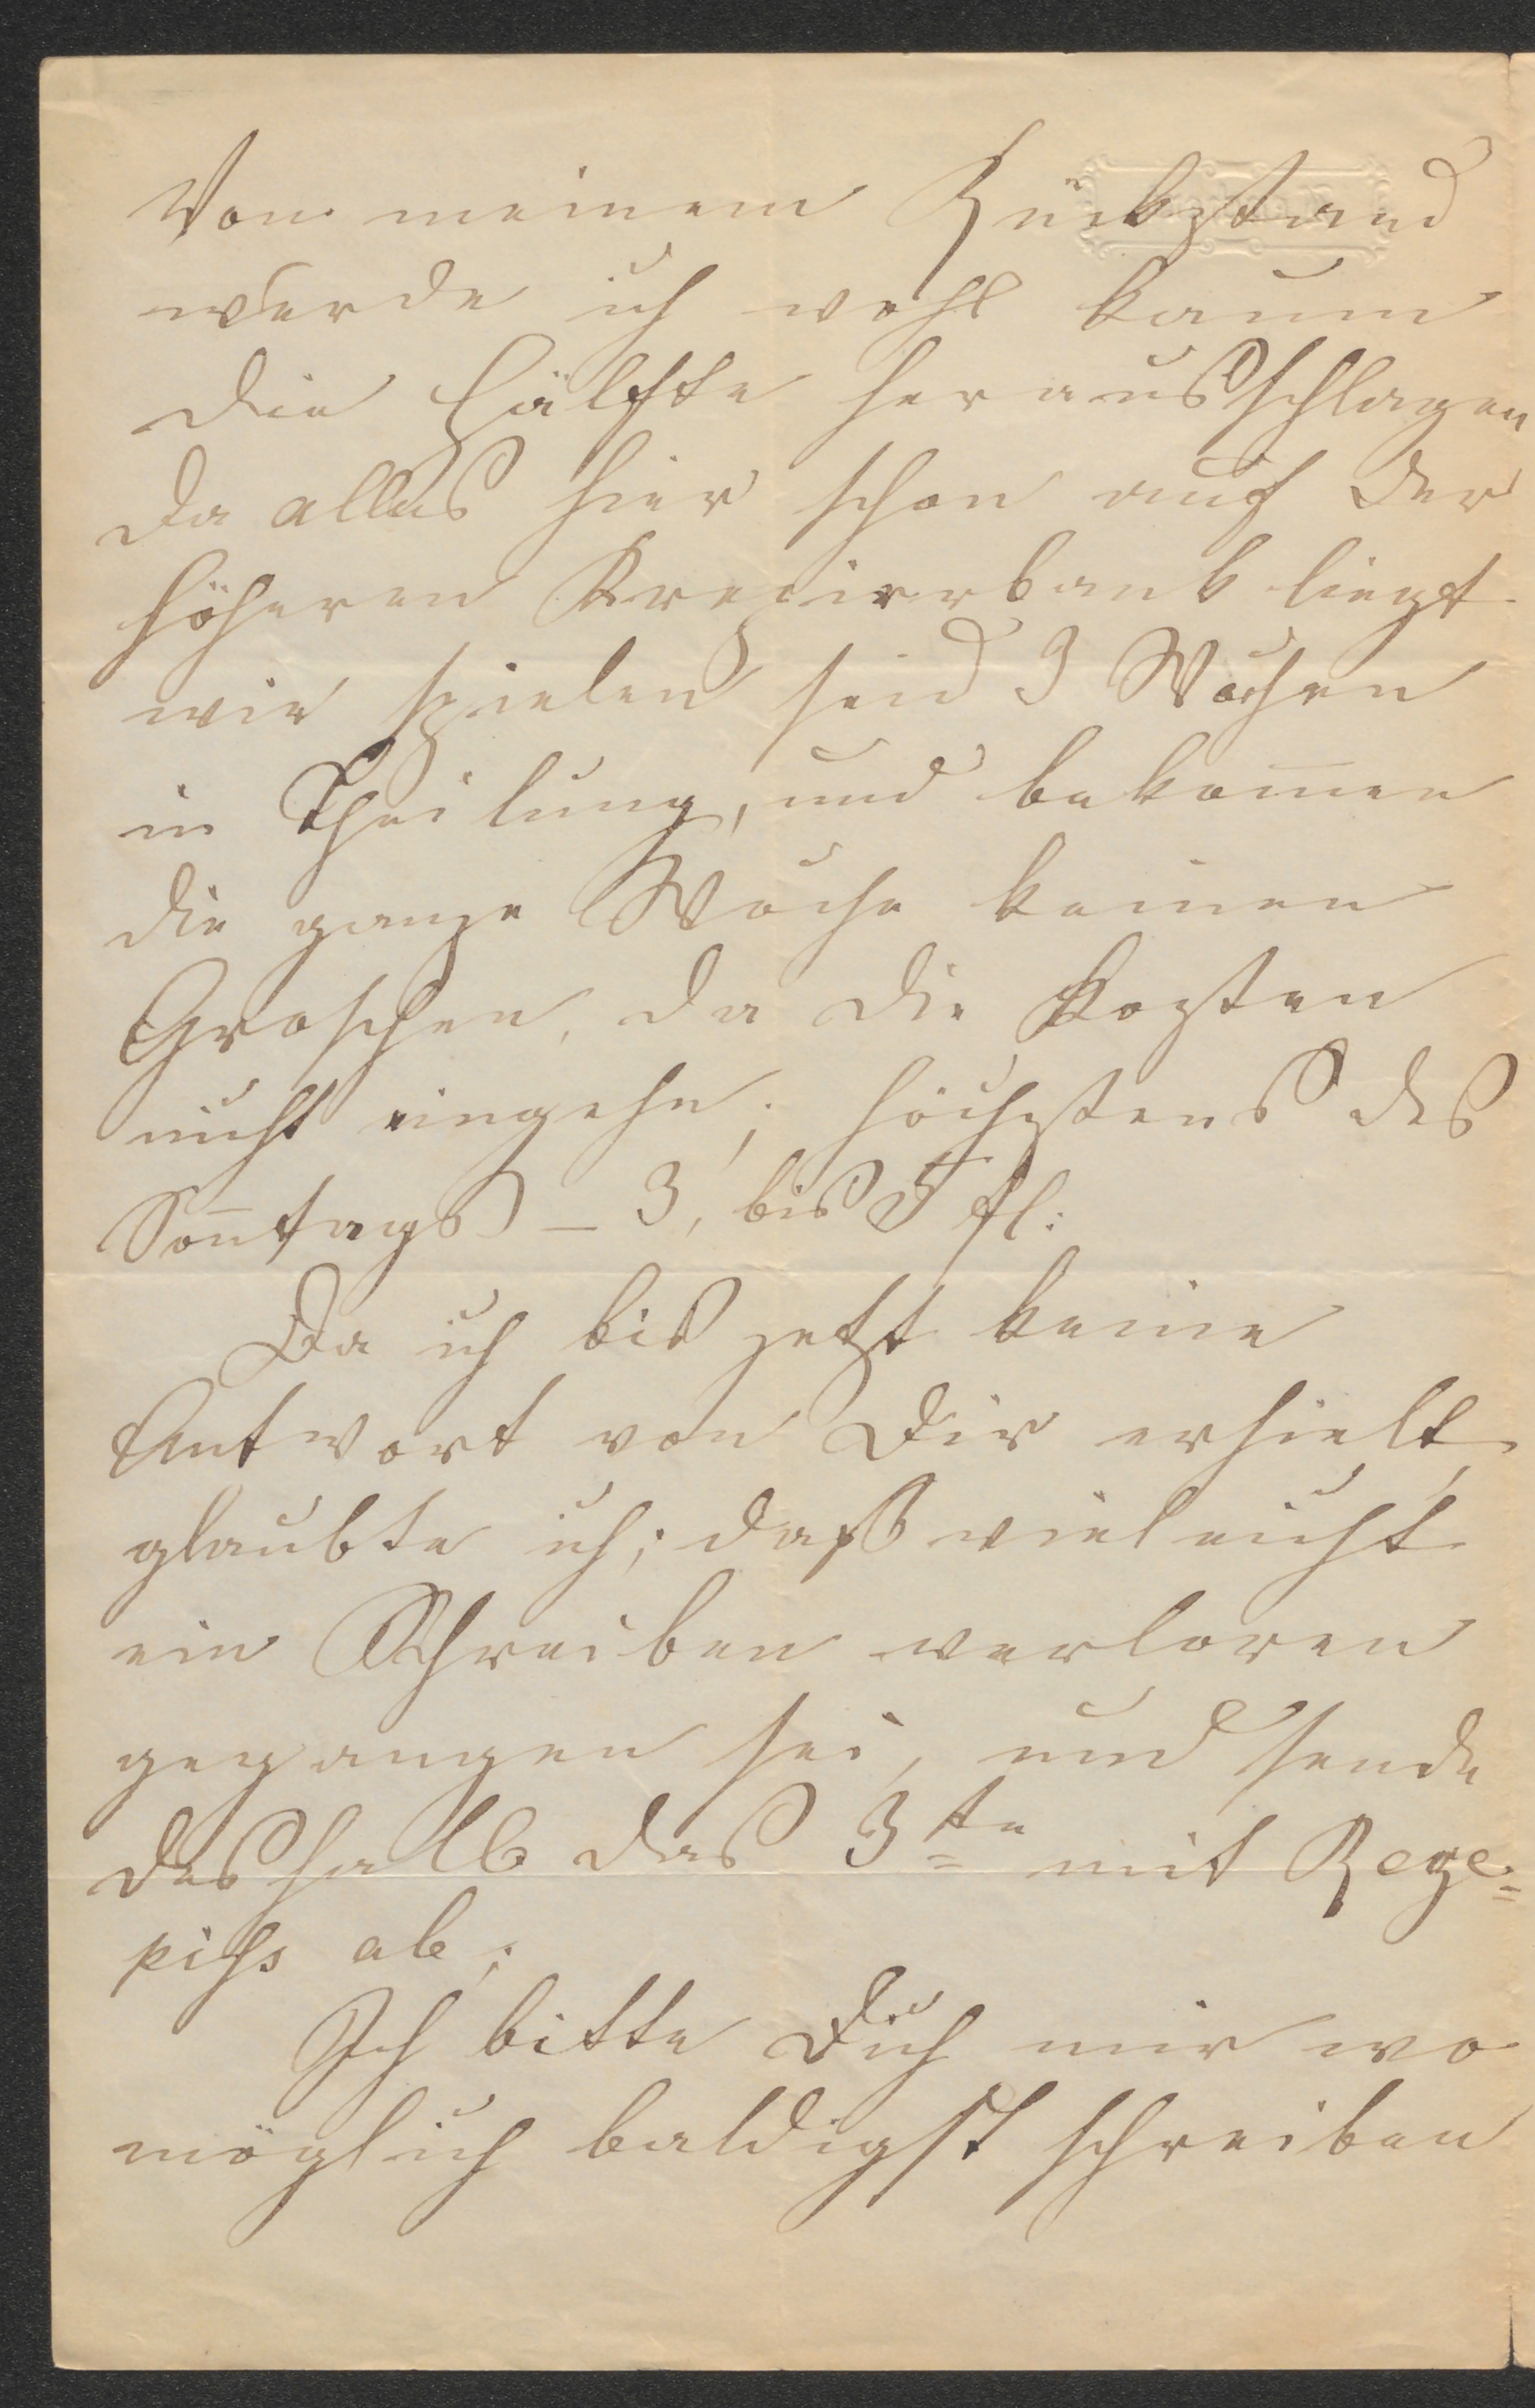 Von meinem Rückstand
werde ich wohl kaum
die Hälfte herausschlagen
da alles hier schon auf der
höheren Krepirrbank liegt.
wir spielen seid 3 Wochen
in Theilung, und bekom̄en
die ganze Woche keinen
Groschen, da die Kosten
nicht eingehn; höchstens des
Son̄tags – 3, bis 5 fl:
Da ich bis jetzt keine
Antwort von Dir erhielt,
glaubte ich; daß vieleicht
ein Schreiben verloren
gegangen sei, und sende
deshalb das 3te mit Reze=
piss ab;
Ich bitte Dich mir wo
möglich baldigst schreiben